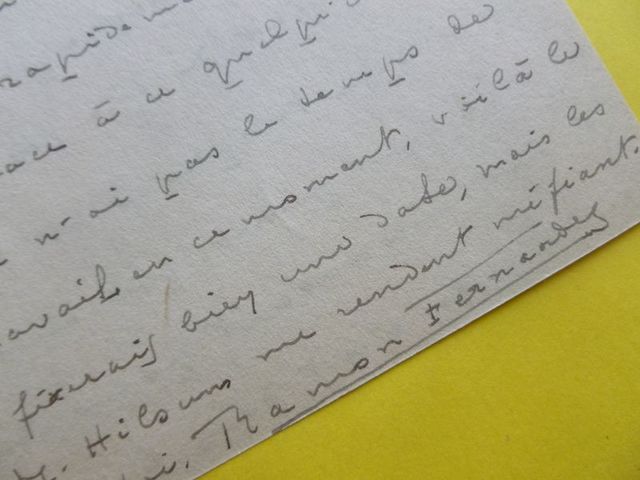 rapide
à ce quelqu
n'ai pas le temps de
en ce moment, voilà le
fixerais bien une date, mais les
M. Hilsum me rendent méfiant.
Ramon Fernandez